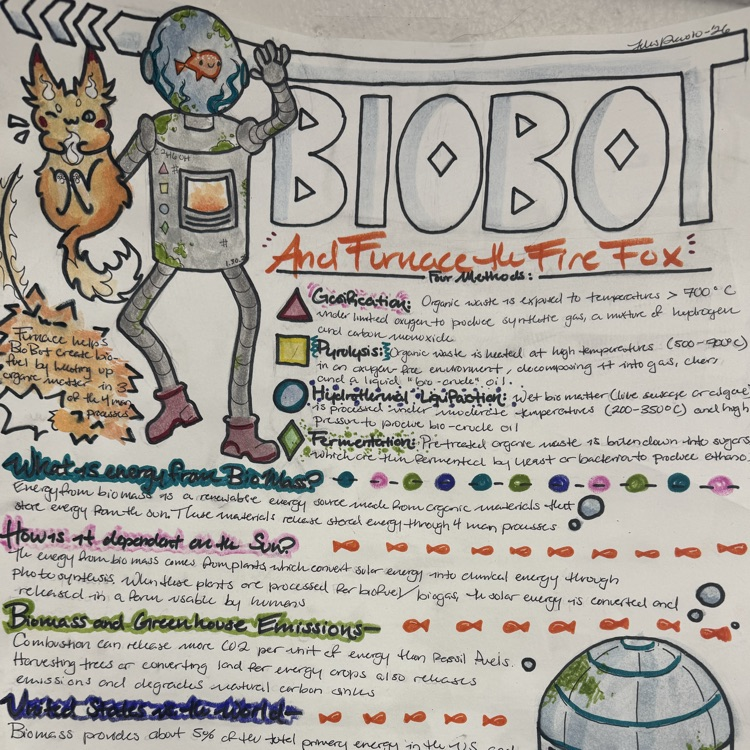 BIOBOT
And Furnace the Fire Fox
Four Methods:
Gasification: Organic waste is exposed to temperatures > 700°C
under limited oxygen to produce synthetic gas, a mixture of hydrogen
and carbon monoxide
Pyrolysis: Organic waste is heated at high temperatures (500-900°C)
in an oxygen free environment, decomposing it into gas, char,
and a liquid "bio-crude" oil.
Hydrothermal Liquifaction: Wet bio matter (like sewage or algae)
is processed under moderate temperatures (200-350°C) and high
pressure to produce bio-crude oil
Fermentation: Pre-treated organic waste is broken down into sugars
which are then fermented by yeast or bacteria to produce ethanol
Furnace helps
BioBot create bio-
fuel by heating up
organic matter in 3
of the 4 main
processes
What is energy from BioMass?
Energy from biomass is a renewable energy source made from organic materials that
store energy from the sun. These materials release stored energy through 4 main processes
How is it dependent on the Sun?
The energy from bio mass comes from plants which convert solar energy into chemical energy through
photosynthesis. When these plants are processed for biofuel/biogas, the solar energy is converted and
released in a form usable by humans
Biomass and Greenhouse Emissions-
Combustion can release more CO2 per unit of energy than fossil fuels.
Harvesting trees or converting land for energy crops also releases
emissions and degrades natural carbon sinks
United States vs the World-
Biomass provides about 5% of the total primary energy in the US and